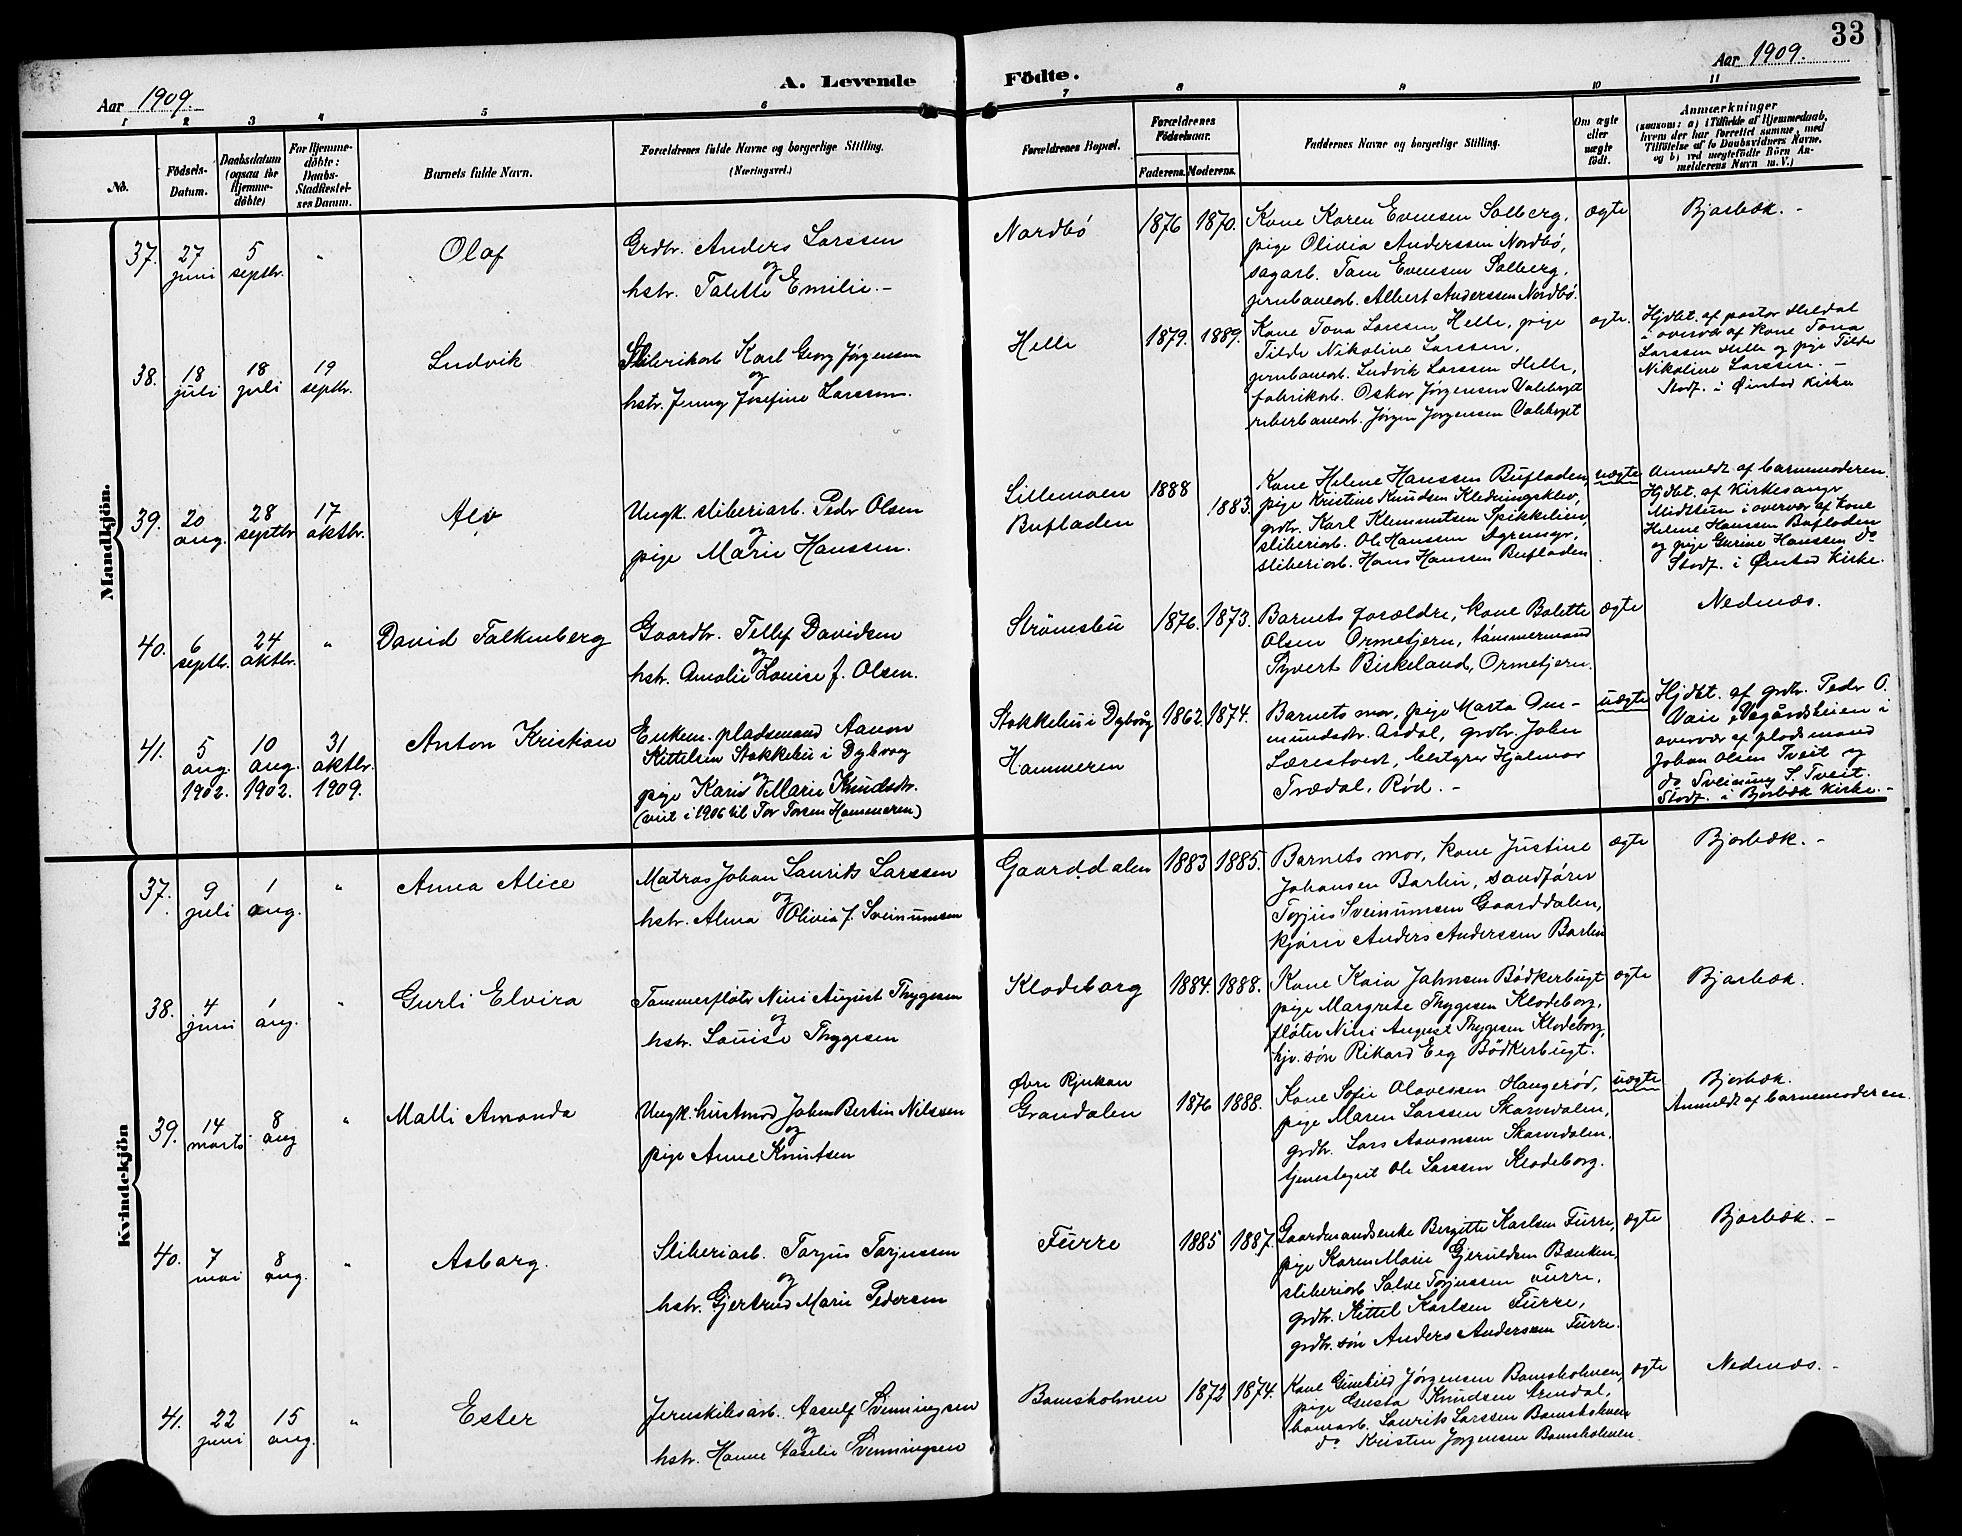 33
A. Levende Födte.
Aar 1909.
Aar 1909.
1 2 3 4 5 6 7 8 9 10 11
No.
Födsels-Datum.
Daabsdatum (ogsaa for Hjemme-döbte)
For Hjemme-döbte: Daabs-Stadfæstel-ses Datum.
Barnets fulde Navn.
Forældrenes fulde Navne og borgerlige Stilling.
(Næringsvei.)
Forældrenes Bopæl.
Forældrenes Födselsaar.
Faderens. Moderens.
Faddernes Navne og borgerlige Stilling.
Om ægte eller uægte födt.
Anmærkninger
(saasom: a) i Tilfælde af Hjemmedaab, hvem der har forrettet samme, med Tilföielse af to Daabsvidners Navne, og b) ved uægtefödte Börn Anmelderens Navn m. V.)
Mandkjön.
37. 27 juni 5 septbr. " Olaf
Grdbr. Anders Larssen
og
hstr. Talette Emilie. -
Nordbö 1876 1870.
Kone Karen Evensen Solberg,
pige Olivia Anderssen Nordbö,
sagarb. Tam Evensen Solberg,
jernbanearb. Albert Anderssen Nordbö.
ægte Bjorbæk. -
38. 18 juli 18 juli 19 septbr. Ludvik
Sliberiarb Karl Georg Jørgensen
og
hstr. Jenny Josefine Larssen.
Helle 1879. 1889.
Kone Tona Larssen Helle, pige
Tilde Nikoline Larssen,
jernbanearb. Ludvik Larssen Helle,
fabrikarb. Oskar Jørgensen Valebugt
Jørgen Jørgensen Valebugt
ægte.
Hjdbt. af pastor Heldal
i overvær af kone Tona
Larssen Helle og pige Tilde
Nikoline Larssen. -
Stadf. i Øiestad Kirke
39. 20 aug. 28 septbr 17 oktbr. Alv
Ungk. sliberiarb. Peder Olsen
og
pige Marie Hanssen.
Lillemoen
Bufladen
1888 1883.
Kone Helene Hanssen Bufladen,
pige Kristine Knudsen Kledningsklev,
grdbr. Karl Klemmetsen Spikkelien,
sliberiarb. Ole Hanssen
sliberiarb. Hans Hanssen Bufladen
uægte
Anmeldt af barnemoderen.
Hjdbt. af Kirkesanger
Midtbun i overvær af kone
Helene Hanssen Bufladen
og pige Gurine Hanssen do
Stadf. i Øiestad Kirke.
40. 6 septbr. 24 oktbr. " David Falkenberg
Gaardbr. Tellef Davidsen
og
hstr. Amalie Louise f. Olsen.
Strömsbu 1876. 1873.
Barnets forældre, kone Bolette
Olsen Ormetjern, tömmermand
Syvert Birkeland, Ormetjern.
ægte Nedenæs.
41. 5 aug. 1902. 10 aug. 1902. 31 oktbr. 1909. Anton Kristian
Enkem. pladsmand Aanon
Kittelsen Stokkebu i Dybvaag
og
pige Karen Marie Knudsdtr.
(viet i 1906 til Tor Torsen Hammeren)
Stokkebu i Dybvåg
Hammeren
1862. 1874.
Barnets mor, pige Marta Gun-
mundsdtr. Asdal, grdbr. John
Lærestvedt, bestyrer Hjalmar
Trædal, Rød. -
uægte
Hjdbt. af grdbr. Peder O.
Vaie, Vegårdsheien i
overvær af pladsmand
Johan Olsen Tveit og
do Sveinung S. Tveit.
Stadf. i Bjorbæk Kirke. -
Kvindekjön
37. 9 juli 1 aug. " Anna Alice
Matros Johan Laurits Larssen
og
hstr. Alma Olivia f. Sveinumsen
Gaarddalen 1883 1885.
Barnets mor, kone Justine
Johansen Barlin, sandförer
Torjus Sveinumsen Gaarddalen,
kjörer Anders Anderssen Barlin
ægte Bjorbæk. -
38. 4 juni 1 aug. " Gurli Elvira
Tømmerfløter Nini August Thygesen
og
hstr. Louise Thygesen
Klodeborg 1884. 1888.
Kone Kaia Jahnsen Bödkerbugt
pige Margrete Thygesen Klodeborg,
fløter Nini August Thygesen Klodeborg,
hjv. søn Rikard Eeg Bödkerbugt.
ægte Bjorbæk.
39. 14 marts 8 aug " Malli Amanda
Ungk. husmand Johan Bertin Nilssen
og
pige Anne Knutsen
Øvre Rjukan
Grandalen
1876 1888.
Kone Sofie Olavessen Haugerød,
pige Maren Larssen Skarvedalen,
grdbr. Lars Aanonsen Skarvedalen,
tjenestegut Ole Larssen Klodeborg.
uægte
Bjorbæk.
Anmeldt af barnemoderen.
40. 7 mai 8 aug. " Asborg.
Sliberiarb. Torjus Torjussen
og
hstr. Gjertrud Marie Pedersen
Furre 1885 1887.
Gaardmandsenke Bergitte Karlsen Furre,
pige Karen Marie Gjeruldsen Bænken,
sliberiarb Salve Torjussen Furre,
grdbr. Kittel Karlsen Furre,
grdbr. søn Anders Anderssen Furre.
ægte Bjorbæk. -
41. 22 juni 15 aug. " Ester
Jernskibsarb. Aasulf Svenningsen
og
hstr. Hanne Aaselie Svenningsen
Bomsholmen 1872 1874.
Kone Gunhild Jørgensen Bomsholmen,
pige Gusta Knudsen Arendal,
Laurits Larssen Bomsholmen
do Kristen Jørgensen Bomsholmen
ægte Nedenæs. -